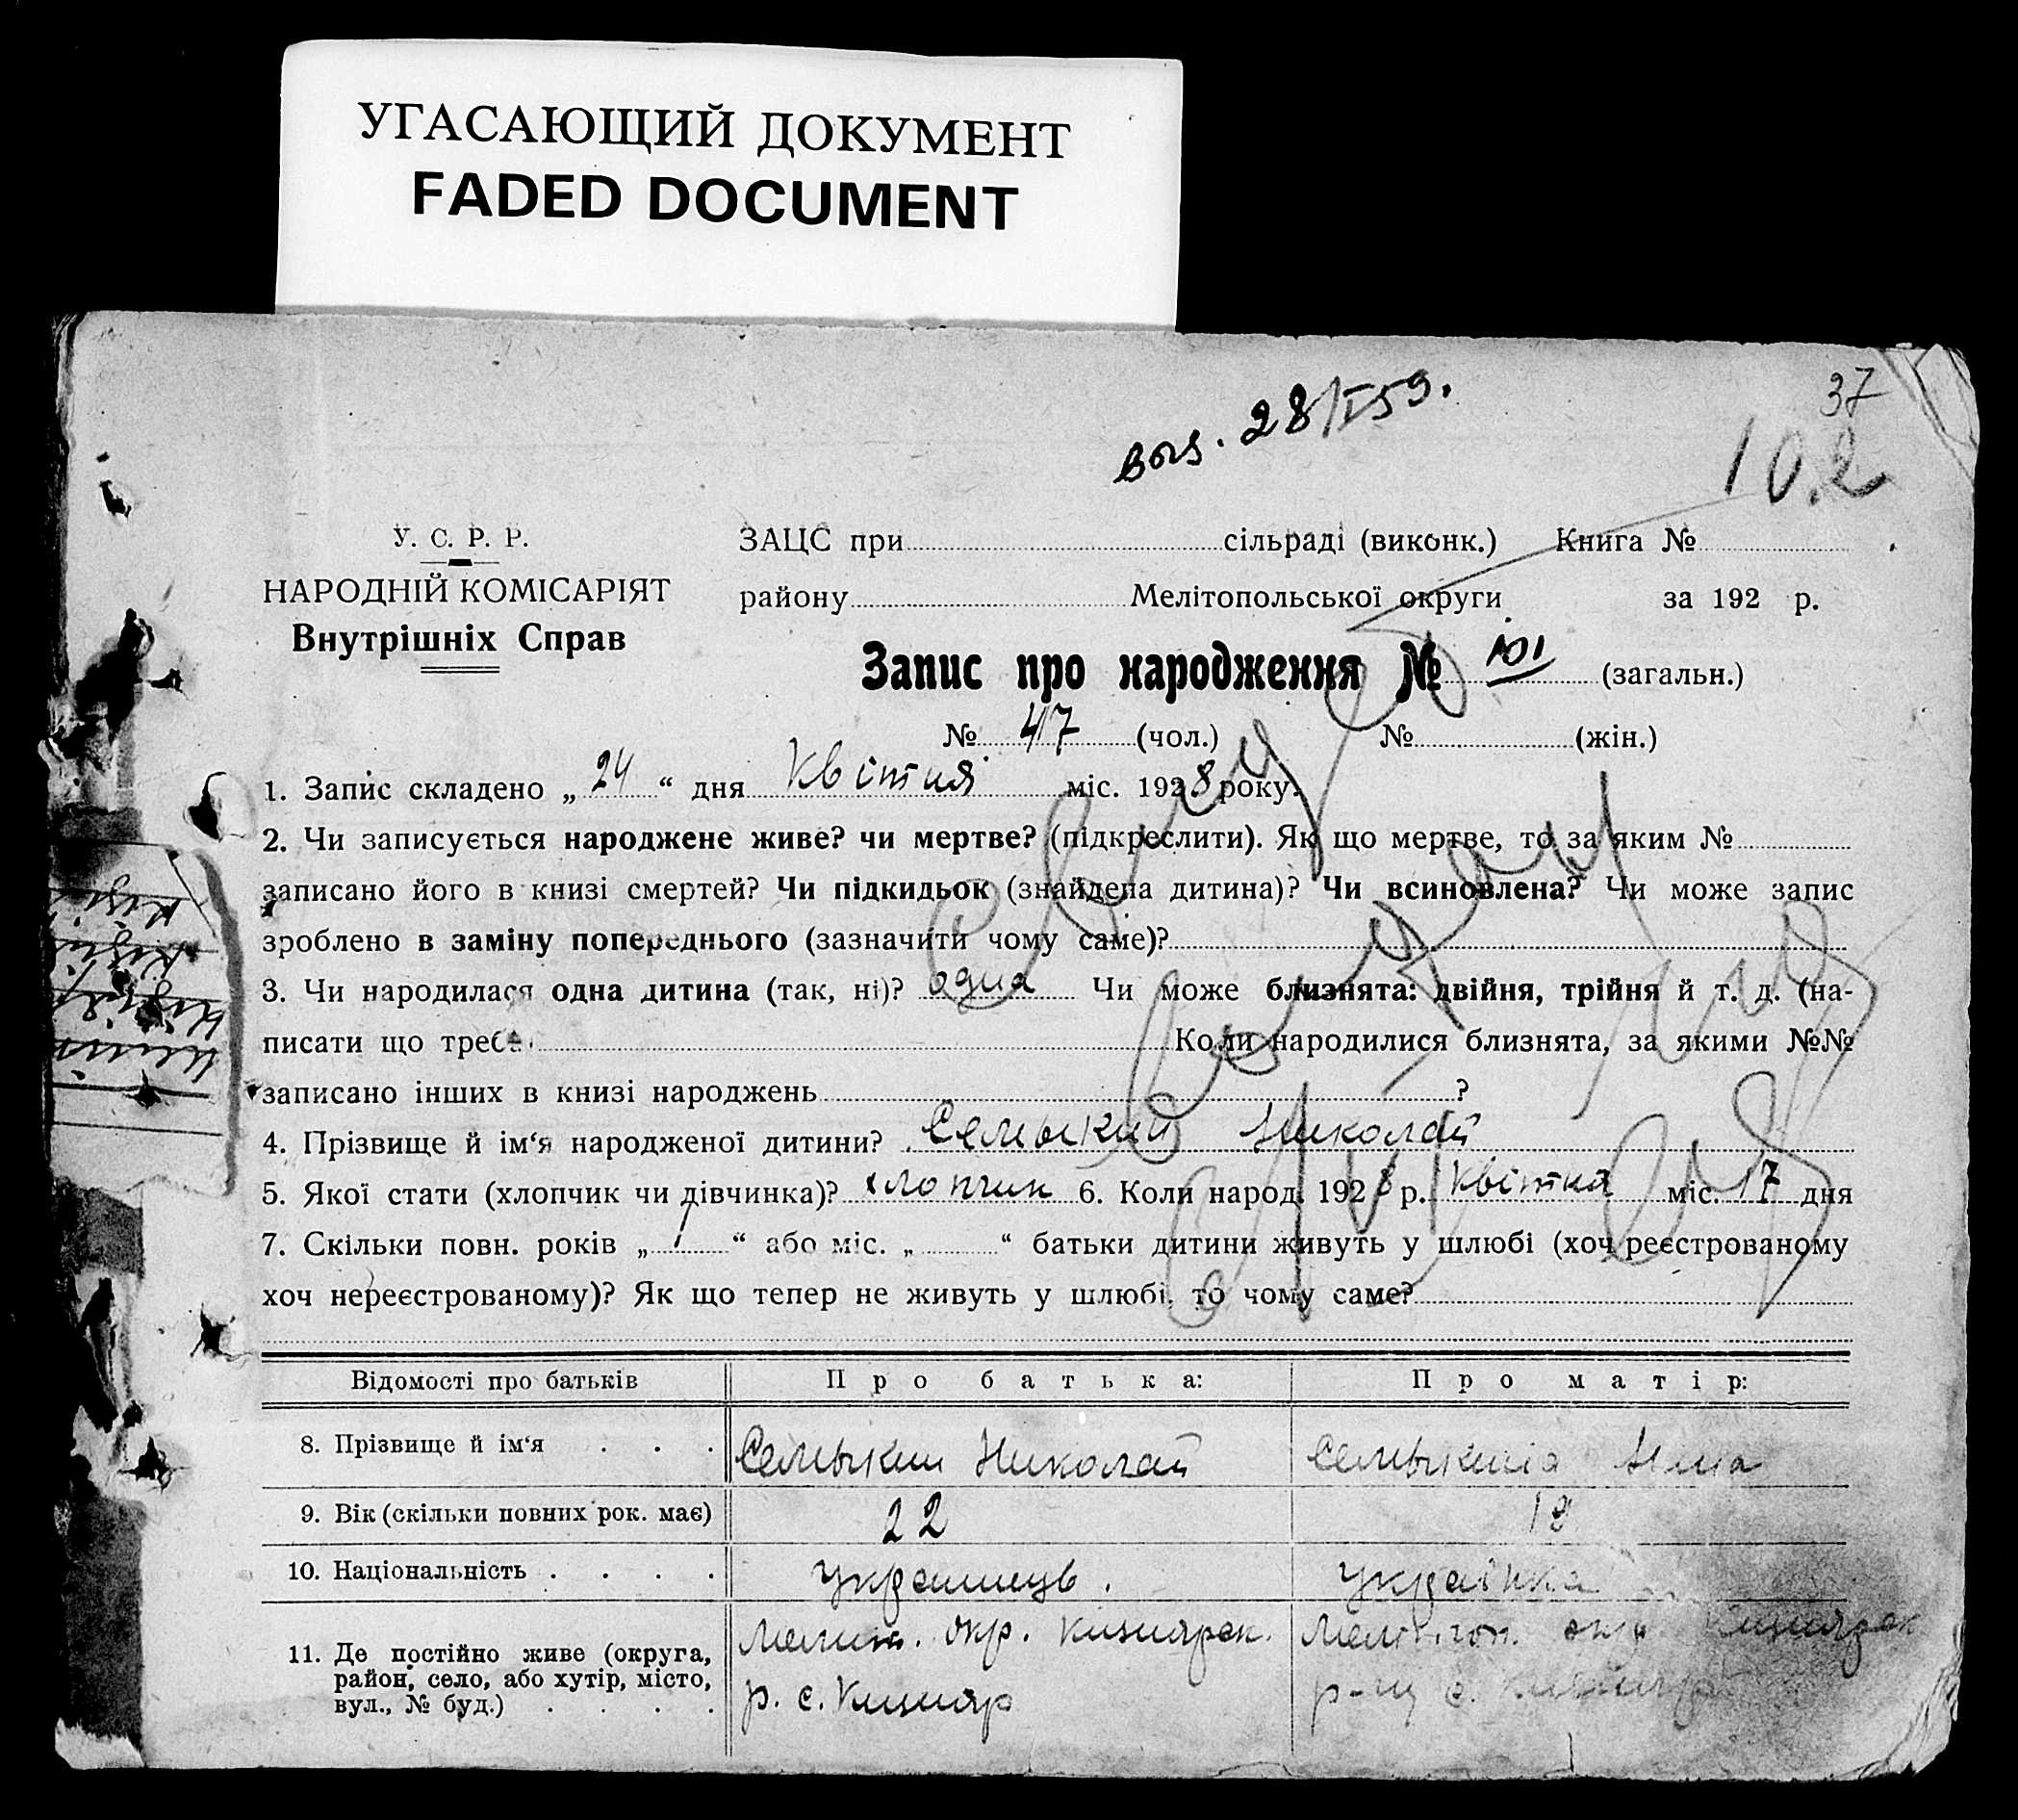 УГАСАЮЩИЙ ДОКУМЕНТ
FADED DOCUMENT
37
28/I 59.
10.2
У. С. Р. Р.
НАРОДНІЙ КОМІСАРІЯТ
Внутрішніх Справ
ЗАЦС при сільраді (виконк.) Книга №
району Мелітопольської округи за 192 р.
Запис про народження № 101 (загальн.)
№ 47 (чол.) № (жін.)
1. Запис складено „ 24 “ дня квітня міс. 1928 року.
2. Чи записується народжене живе? чи мертве? (підкреслити). Як що мертве, то за яким №
записано його в книзі смертей? Чи підкидьок (знайдена дитина)? Чи всиновлена? Чи може запис
зроблено в заміну попереднього (зазначити чому саме)?
3. Чи народилася одна дитина (так, ні)? одна Чи може близнята: двійня, трійня й т. д. (на-
писати що треба Коли народилися близнята, за якими №№
записано інших в книзі народжень ?
4. Прізвище й ім‘я народженої дитини? Николай
5. Якої стати (хлопчик чи дівчинка)? хлопчик 6. Коли народ. 1928 р. квітня міс. 17 дня
7. Скільки повн. років „ 1 “ або міс. „ “ батьки дитини живуть у шлюбі (хоч реєстрованому
хоч нереєстрованому)? Як що тепер не живуть у шлюбі, то чому саме?
Відомості про батьків Про батька: Про матір:
8. Прізвище й ім‘я . . . Николай
9. Вік (скільки повних рок. має) 22
10. Національність . . . . Українець. Українка
11. Де постійно живе (округа, окр.
район, село, або хутір, місто,
вул., № буд.) . . . . р. с. Кизияр